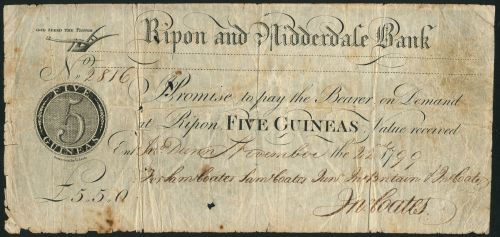 GOD SPEED THE PLOUGH
Ripon and Nidderdale Bank
No. 2816
I Promise to pay the Bearer on Demand
FIVE
5
GUINEAS
at Ripon FIVE GUINEAS Value received
Entd November the 22 1799
For Saml Coates Saml Coates Junr Jno Britain & Jno Coates
£5.5.0
Jno Coates